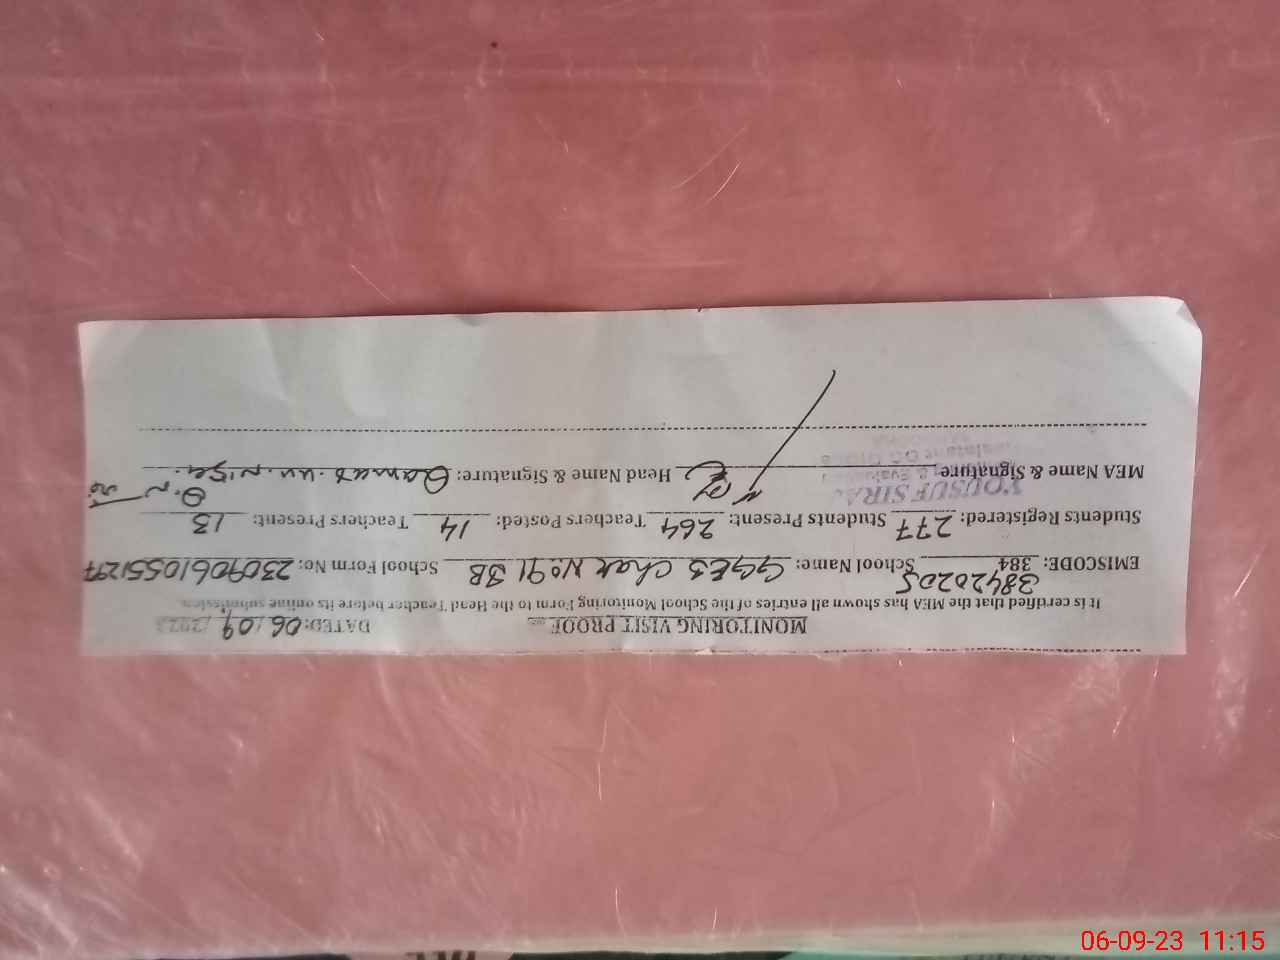 MONITORING VISIT PROOF DATED: 06/09/2023
It is certified that the MEA has shown all entries of the School Monitoring Form to the Head Teacher before its online submission.
38420205
EMISCODE: 384 School Name: GGES Chak No 91 SB School Form No: 23090610551297
Students Registered: 277 Students Present: 264 Teachers Posted: 14 Teachers Present: 13
YOUSUF SIRAJ
MEA Name & Signature: Head Name & Signature: Qamar-un-Nisa
06-09-23 11:15